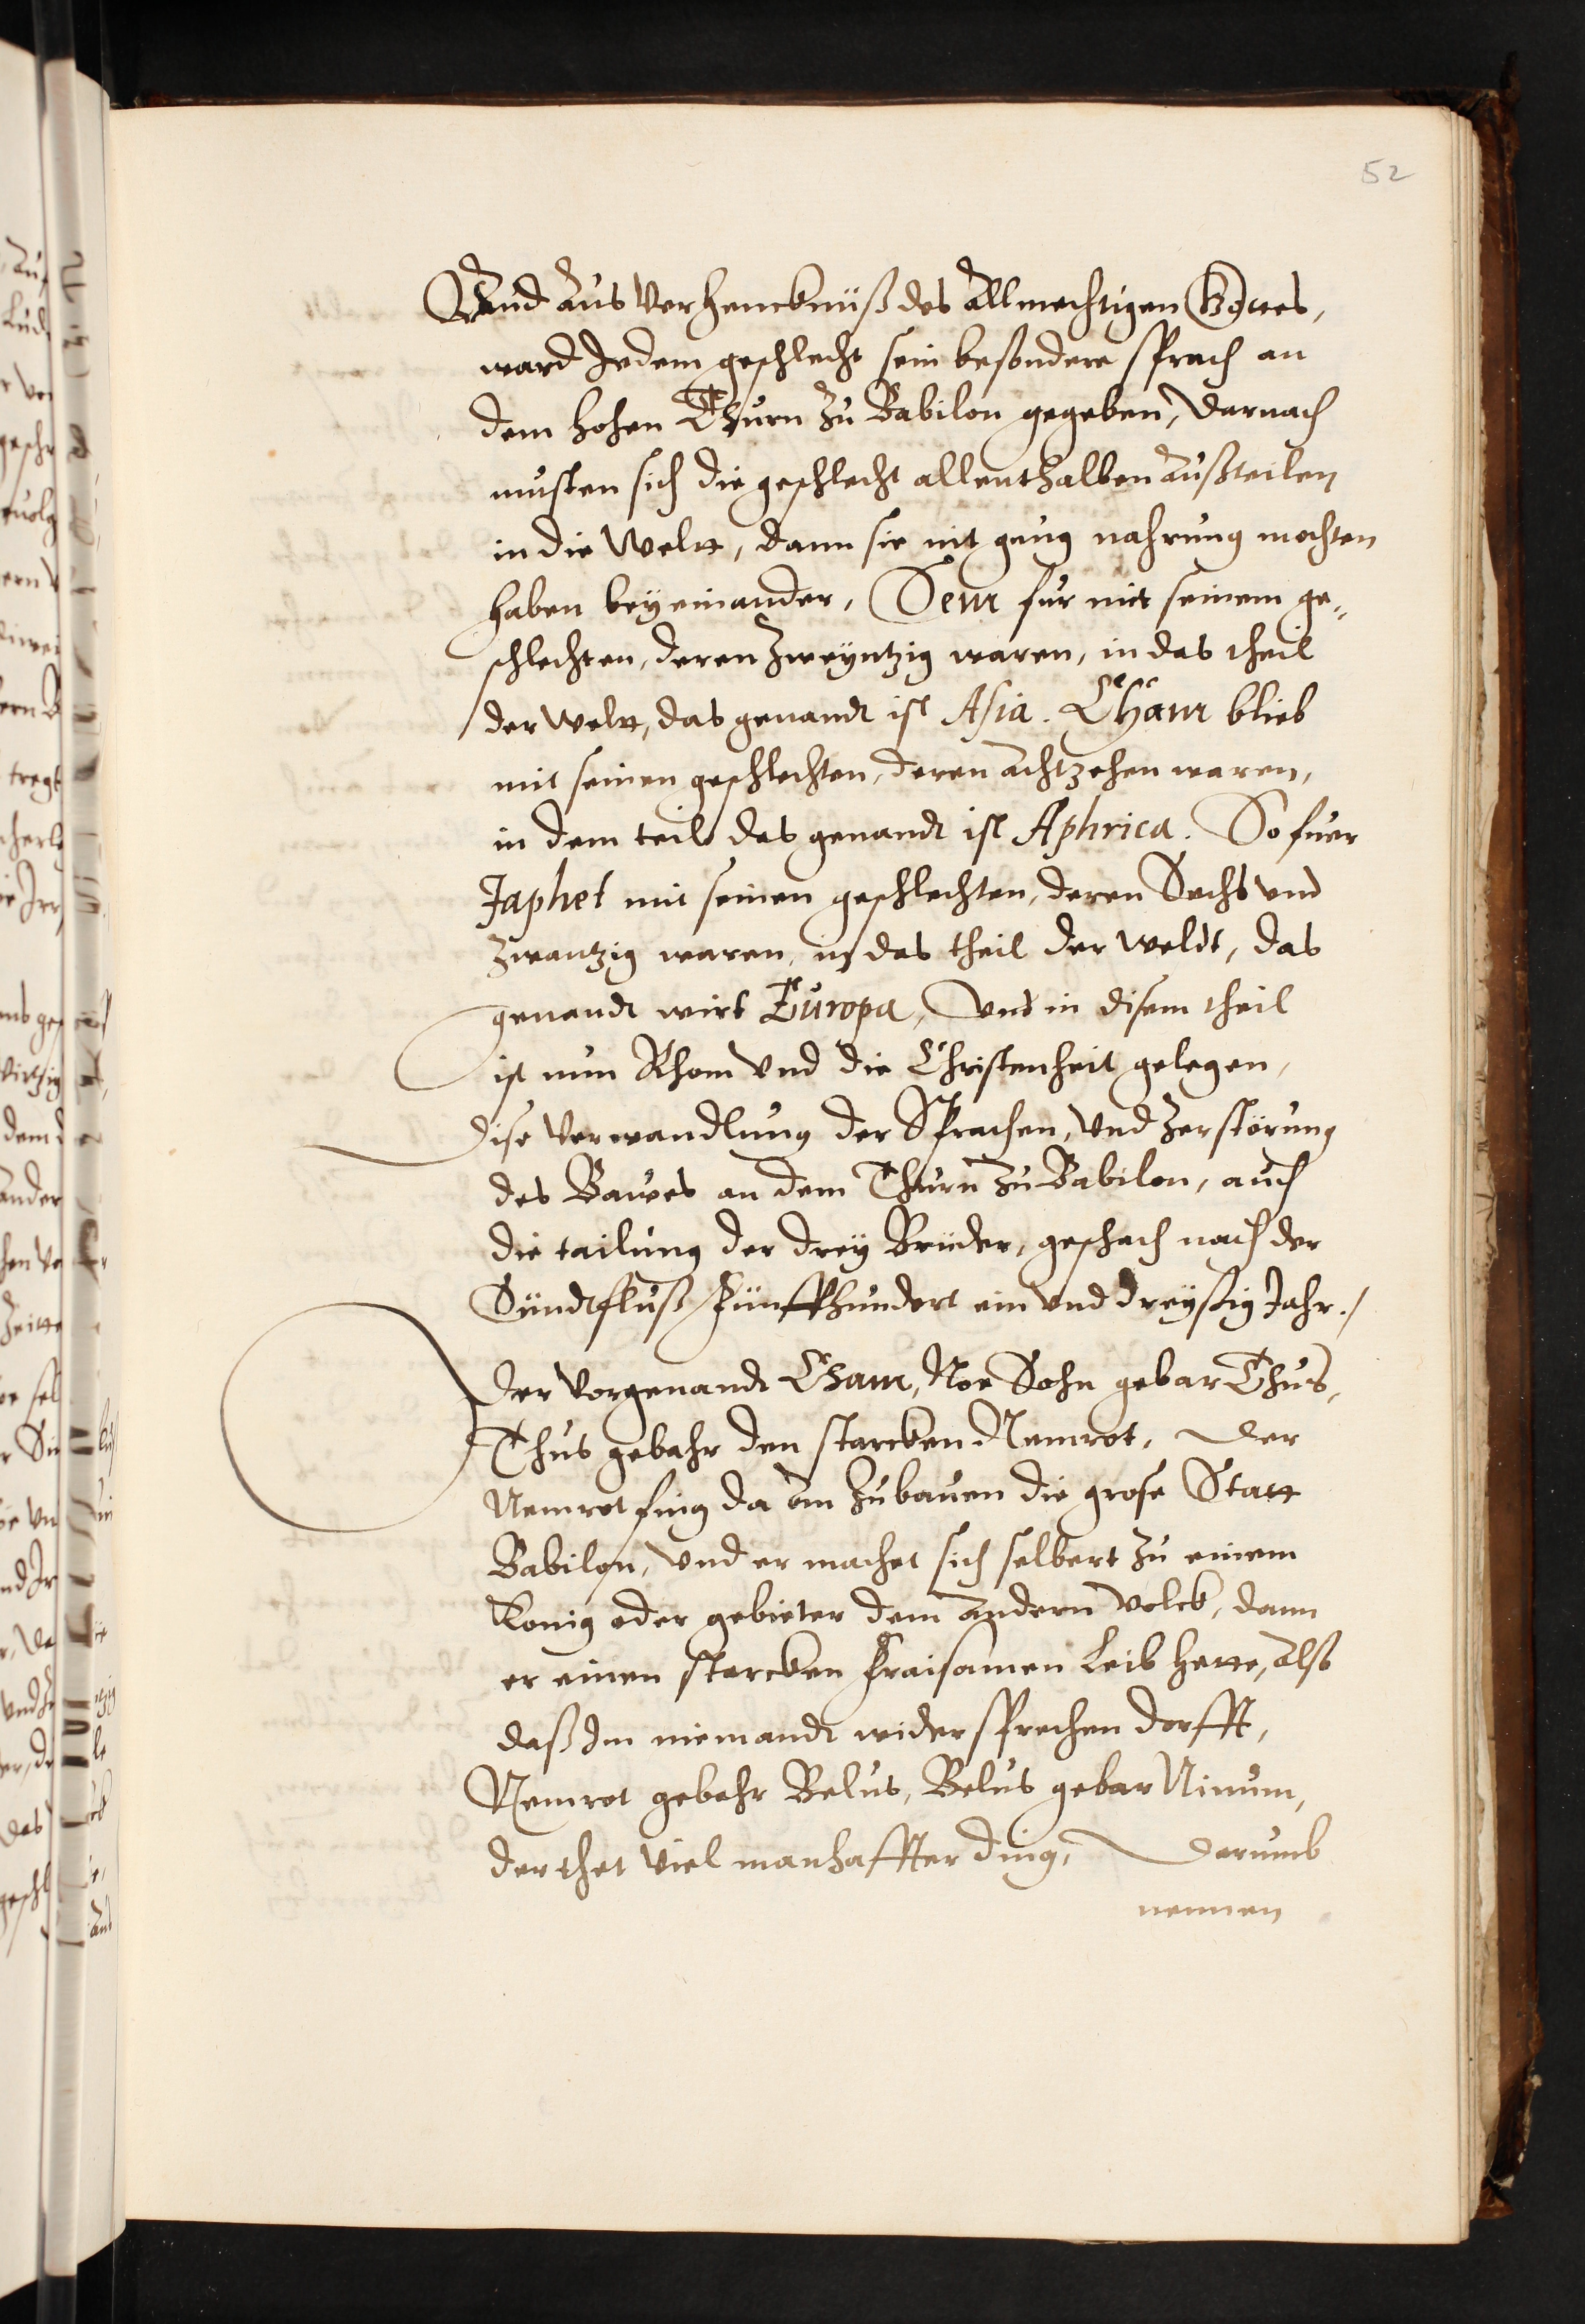 52
Vnd aus Verhencknüß des Allmechtigen Gottes,
ward Jedem geschlecht sein besondere sprach an
dem hohen Thurn zu Babilon gegeben, Darnach
musten sich die geschlecht allenthalben Außteilen
in die Weltt, dann sie nit gnug nahrung mochten
haben bey einander, Sem fur mit seinem ge-
schlechten, deren Zweyntzig waren, in das theil
der Weltt, das genandt ist Asia. Cham blieb
mit seinen geschlechten, deren Achtzehen waren,
in dem teil das genandt ist Aphrica. So fuer
Japhet mit seinen geschlechten, deren Sechs vnd
Zwantzig waren, in das theil der Weldt, das
genandt wirt Europa, Vnd in disem theil
ist nun Rhom Vnd die Christenheit gelegen,
Dise Verwandlung der Sprachen, Vnd Zerstörung
des Bawes an dem Thurn Zu Babilon, auch
die tailung der drey Brüder, geschach nach der
Sündtfluß Fünffhundert ein Vnd dreyßig Jahr./
Der Vorgenandt Cham, Noe Sohn gebar Thus,
Thus gebahr den starcken Nemrot, Der
Nemrot fing da an Zubauen die grose Statt
Babilon, Vnd er machet sich selbert zu einem
König oder gebieter dem Andern Volck, dann
er einen starcken Fraisamen Leib hette, Alß
daß Im niemandt widersprechen dorfft,
Nemrot gebahr Belus, Belus gebar Ninum,
der thet Viel manhaffter ding, Darumb
nennen